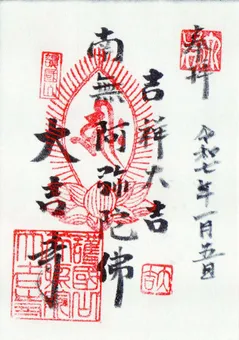 奉拝
令和七年一月五日
吉祥大吉
南無阿弥陀佛
大吉寺